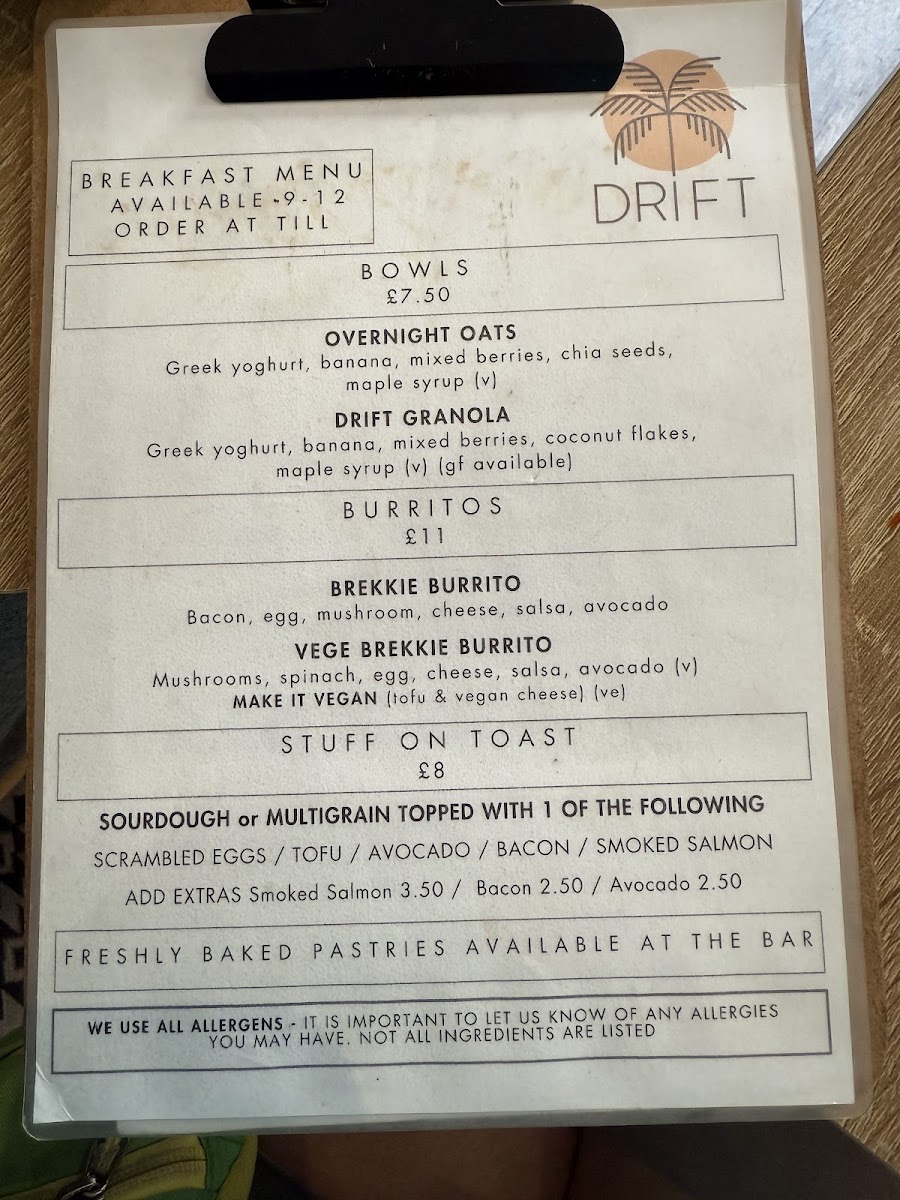 DRIFT
BREAKFAST MENU
AVAILABLE -9-12
ORDER AT TILL
BOWLS
£7.50
OVERNIGHT OATS
Greek yoghurt, banana, mixed berries, chia seeds,
maple syrup (v)
DRIFT GRANOLA
Greek yoghurt, banana, mixed berries, coconut flakes,
maple syrup (v) (gf available)
BURRITOS
£11
BREKKIE BURRITO
Bacon, egg, mushroom, cheese, salsa, avocado
VEGE BREKKIE BURRITO
Mushrooms, spinach, egg, cheese, salsa, avocado (v)
MAKE IT VEGAN (tofu & vegan cheese) (ve)
STUFF ON TOAST
£8
SOURDOUGH or MULTIGRAIN TOPPED WITH 1 OF THE FOLLOWING
SCRAMBLED EGGS / TOFU / AVOCADO / BACON / SMOKED SALMON
ADD EXTRAS Smoked Salmon 3.50 / Bacon 2.50 / Avocado 2.50
FRESHLY BAKED PASTRIES AVAILABLE AT THE BAR
WE USE ALL ALLERGENS - IT IS IMPORTANT TO LET US KNOW OF ANY ALLERGIES
YOU MAY HAVE. NOT ALL INGREDIENTS ARE LISTED